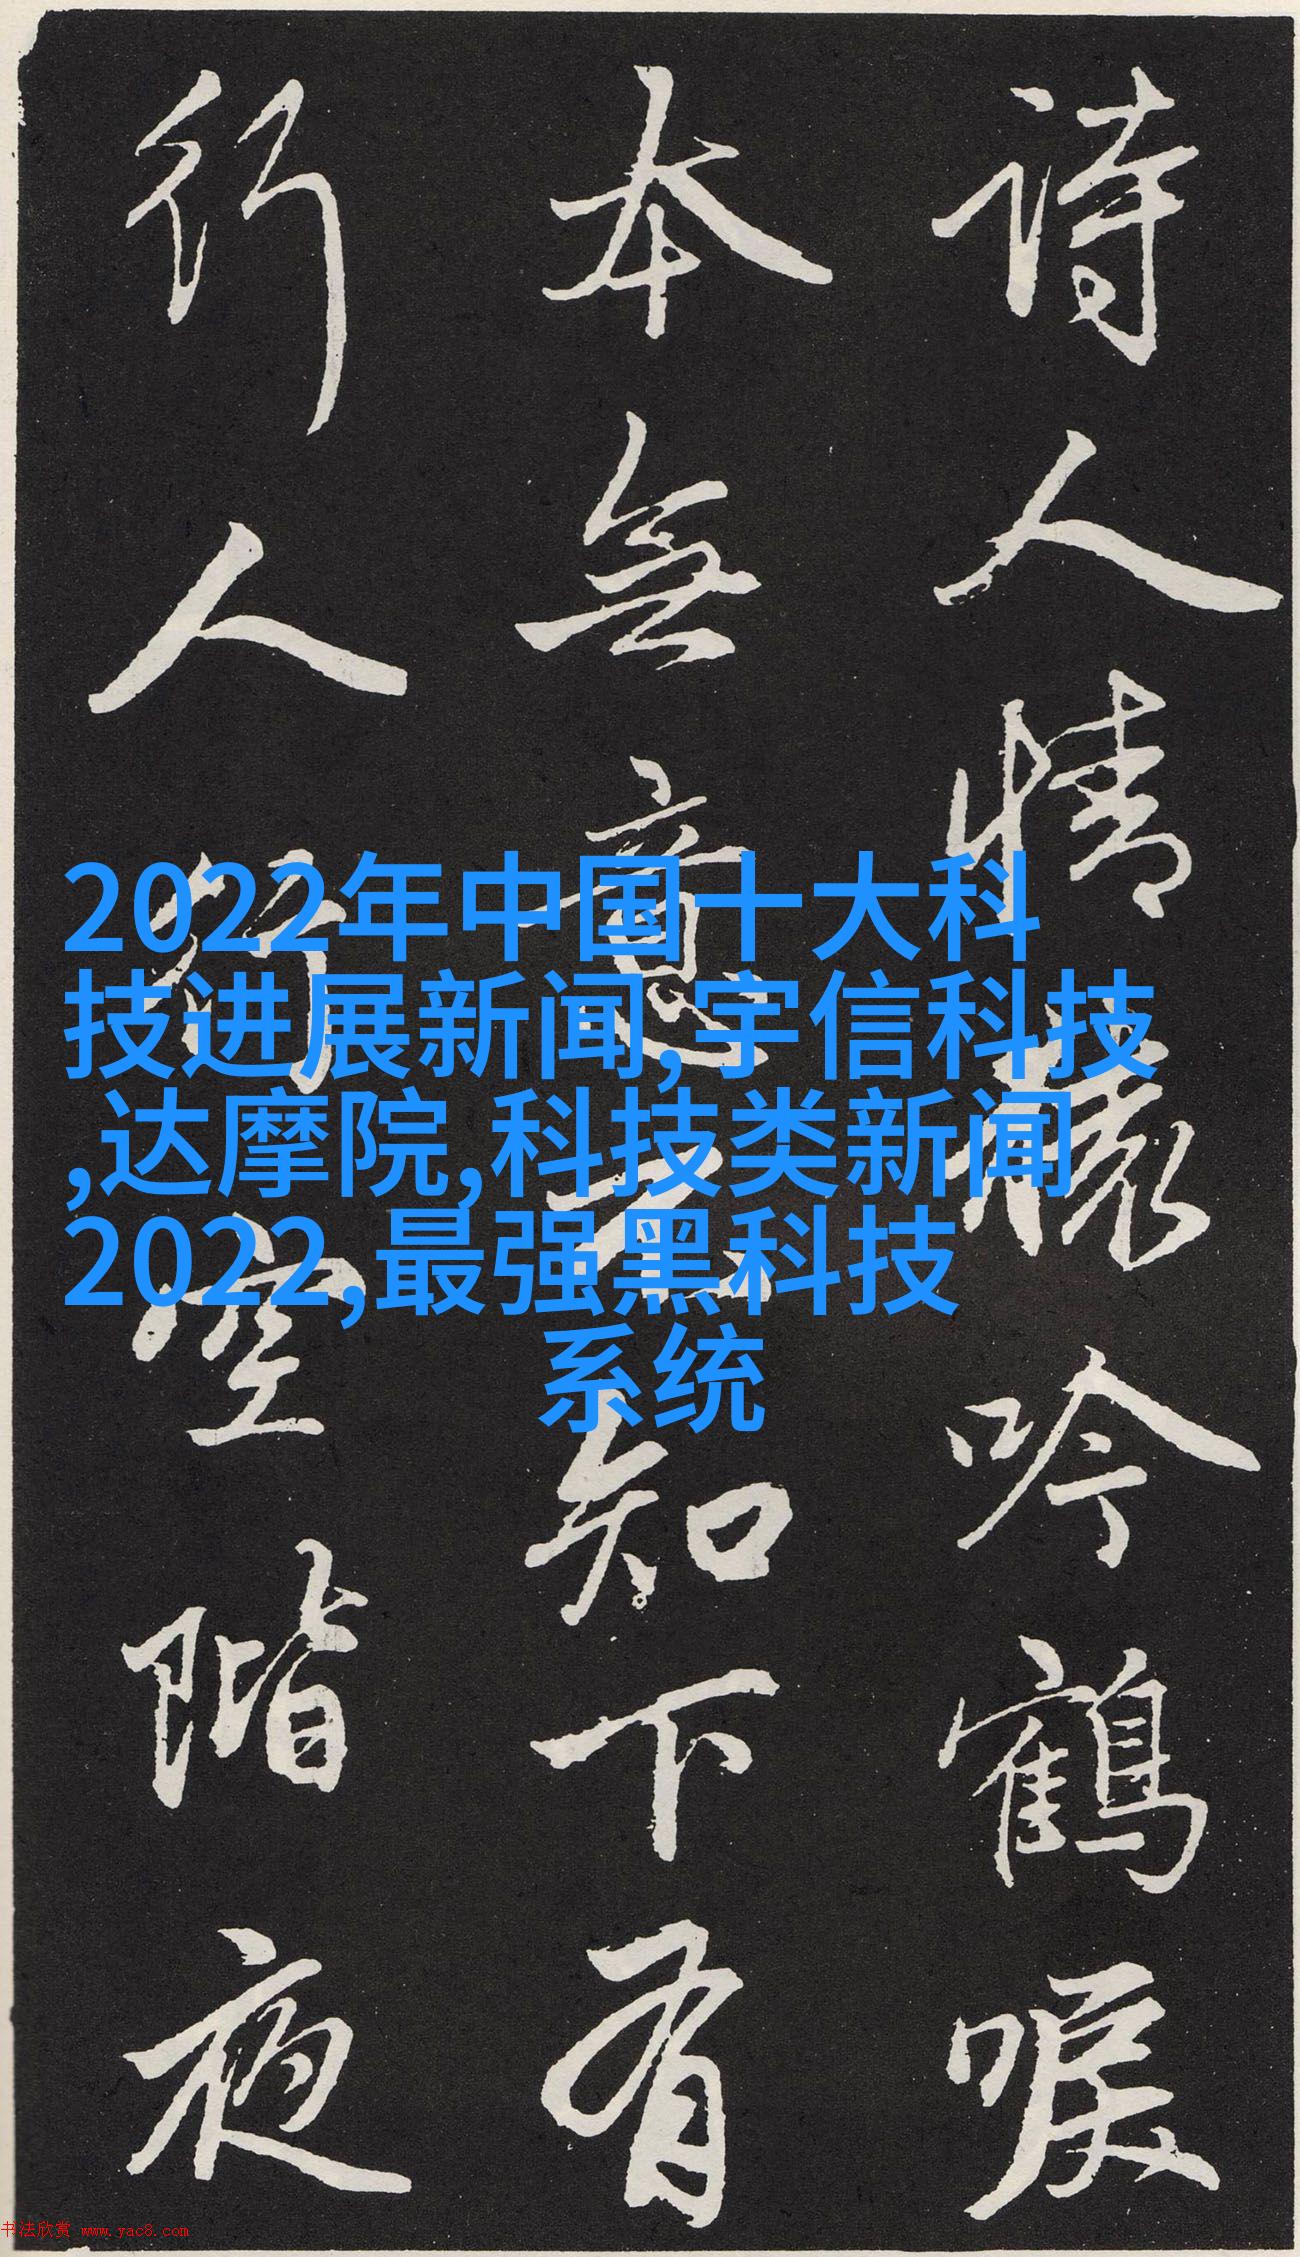 詩人情懷吟鶴唳
本無意知下有
行人空階夜
2022年中国十大科
技进展新闻,宇信科技
,达摩院,科技类新闻
2022,最强黑科技
系统
书法欣赏 www.yac8.com